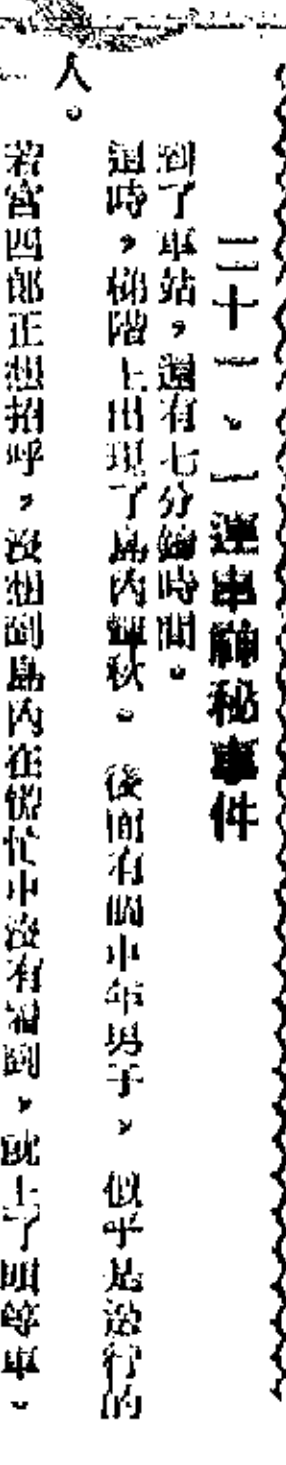 二十一、一連串神秘事件
到了車站，還有七分鐘時間。
這時，梯階上出現了島內輝秋。後面有個中年男子，似乎是送行的
人。
若宮四郎正想招呼，沒想到島內在慌忙中沒有看到，就上了臥車。